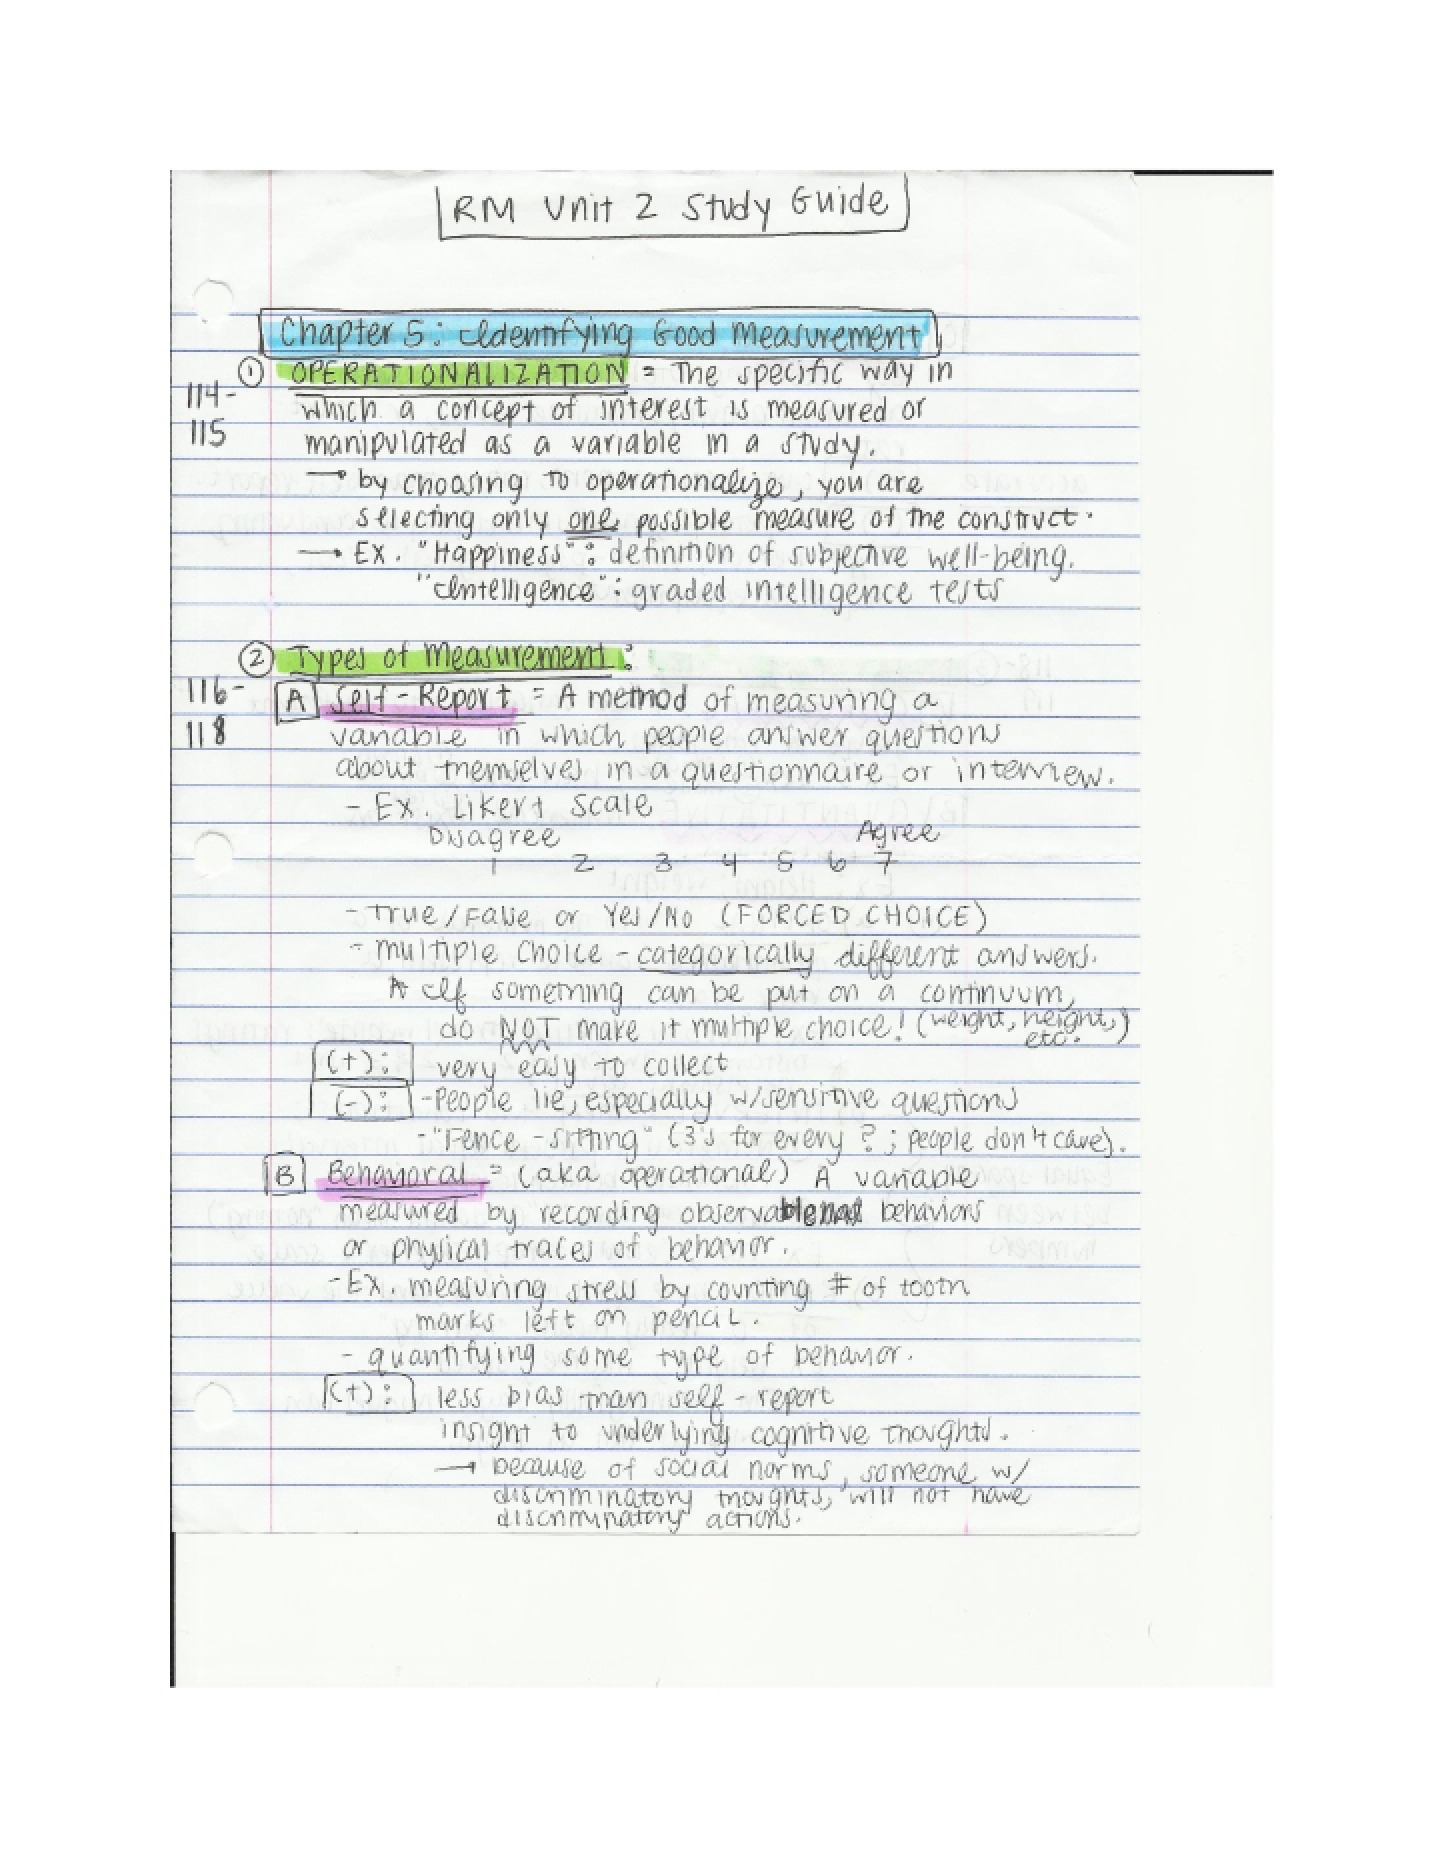 RM Unit 2 Study Guide
Chapter 5: Identifying Good Measurement
① OPERATIONALIZATION = The specific way in
114-
which a concept of interest is measured or
115
manipulated as a variable in a study.
→ by choosing to operationalize, you are
selecting only one possible measure of the construct.
→ Ex. "Happiness": definition of subjective well-being.
"Intelligence": graded intelligence tests
② Types of Measurement:
116-
A Self-Report = A method of measuring a
118
variable in which people answer questions
about themselves in a questionnaire or interview.
- Ex. Likert Scale
Disagree Agree
1 2 3 4 5 6 7
- True/False or Yes/No (FORCED CHOICE)
- Multiple Choice - categorically different answers.
* If something can be put on a continuum,
do NOT make it multiple choice! (weight, height, etc.)
(+): very easy to collect
(-): - People lie, especially w/sensitive questions
- "Fence-sitting" (3's for every ?; people don't care).
B Behavioral = (aka operational) A variable
measured by recording observable behaviors
or physical traces of behavior.
- Ex. measuring stress by counting # of tooth
marks left on pencil.
- quantifying some type of behavior.
(+): less bias than self-report
insight to underlying cognitive thoughts.
→ because of social norms, someone w/
discriminatory thoughts, will not have
discriminatory actions.